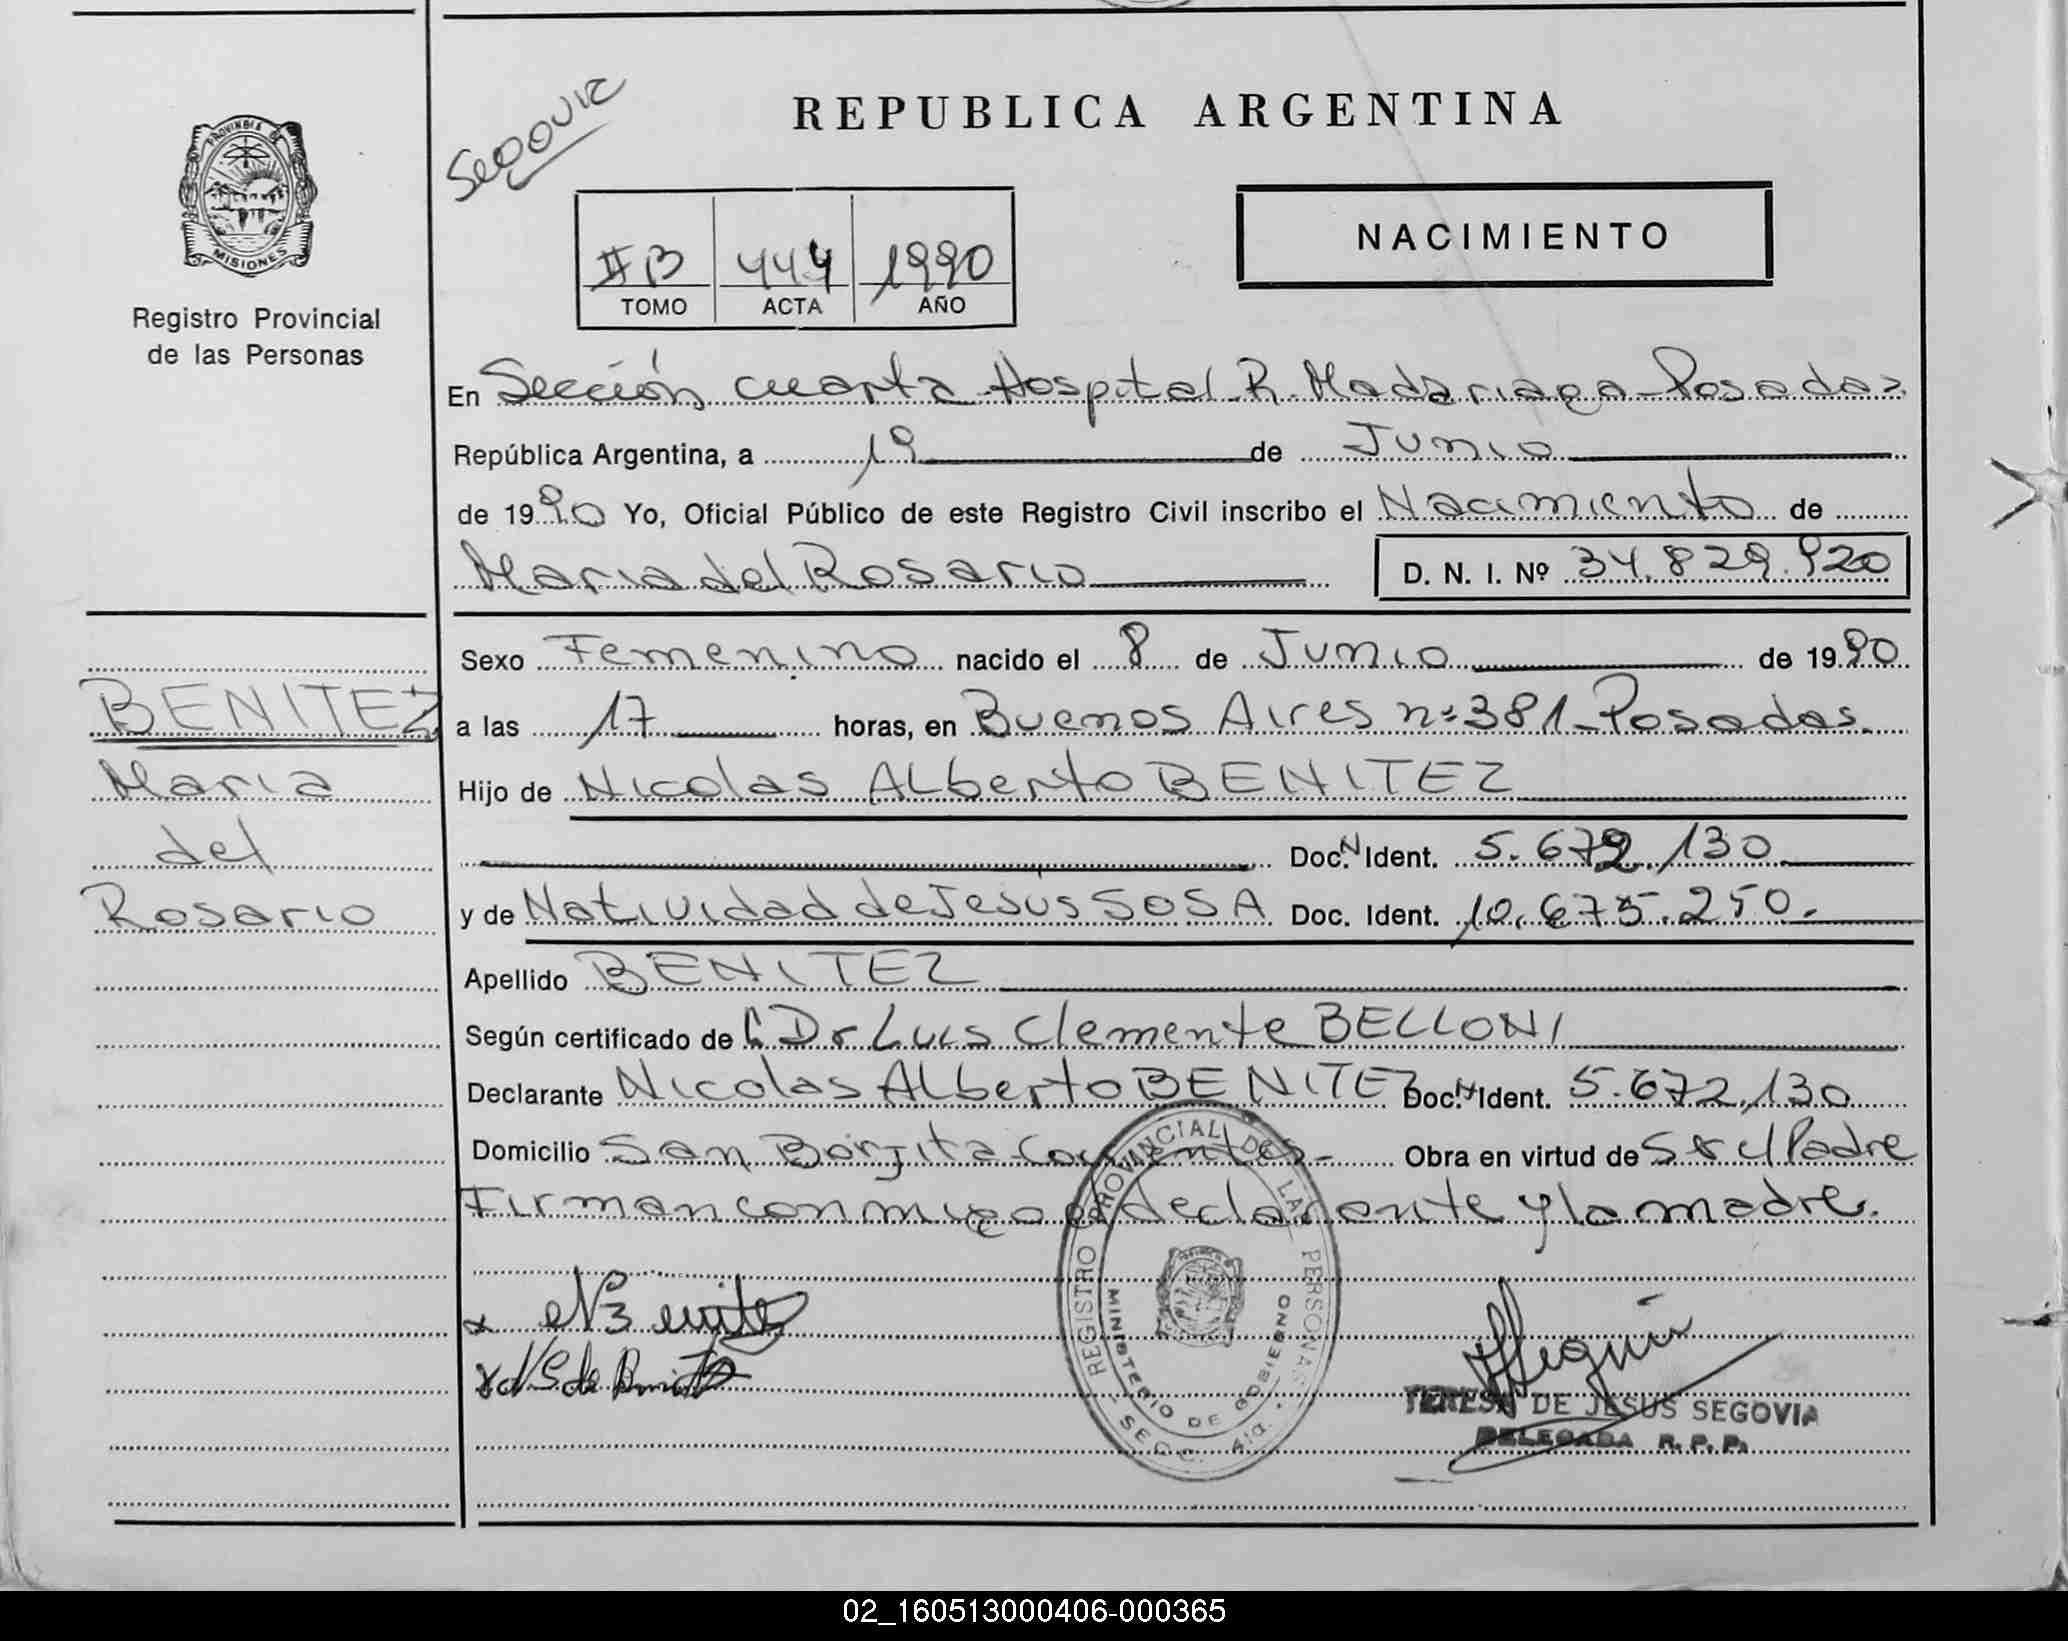 Segovia
REPUBLICA ARGENTINA
PROVINCIA DE
MISIONES
Registro Provincial
de las Personas
II B 444 1990
TOMO ACTA AÑO
NACIMIENTO
En Sección cuarta Hospital R. Madariaga - Posadas
República Argentina, a 19 de Junio
de 1990 Yo, Oficial Público de este Registro Civil inscribo el Nacimiento de
Maria del Rosario D. N. I. Nº 34.829.920
Sexo Femenino nacido el 8 de Junio de 1990
BENITEZ
a las 17 horas, en Buenos Aires nº 381 - Posadas
Maria
Hijo de Nicolas Alberto BENITEZ
del
Doc. N Ident. 5.672.130
Rosario
y de Natividad de Jesús SOSA Doc. Ident. 10.675.250.
Apellido BENITEZ
Según certificado de Dr Luis Clemente BELLONI
Declarante Nicolas Alberto BENITEZ Doc. N Ident. 5.672.130
Domicilio San Borjita - Corrientes - Obra en virtud de Ser el Padre
Firman conmigo el declarante y la madre.
x N Benitez
x N S de Benitez
REGISTRO PROVINCIAL DE LAS PERSONAS
MINISTERIO DE GOBIERNO
SECC. 4ta.
TERESA DE JESUS SEGOVIA
DELEGADA R. P. P.
02_160513000406-000365